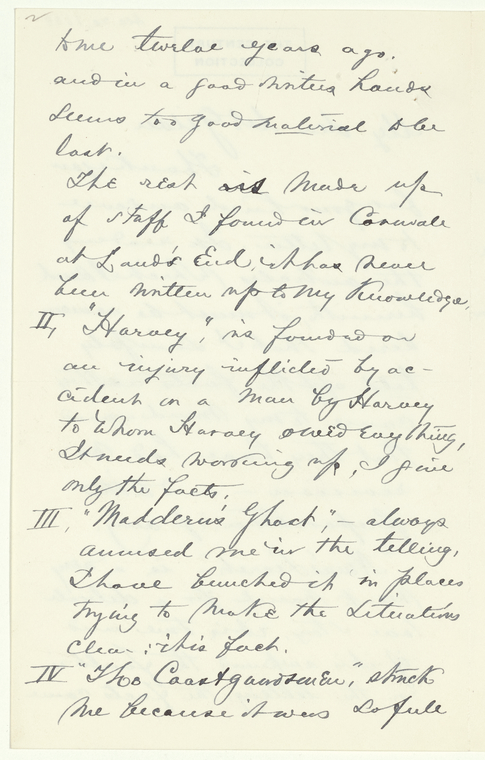 to me twelve years ago.
and in a good writers hands
seems too good material to be
lost.
The rest is made up
of stuff I found in Cornwall
at Land's End, it has never
been written up to my Knowledge,
II, "Harvey", is founded on
an injury inflicted by ac-
cident on a man by Harvey
to whom Harvey owed everything,
It needs working up, I give
only the facts.
III, "Maddern's Ghost", - always
amused me in the telling,
I have bunched it in places
trying to make the situations
clear: it is fact.
IV "The Coastguardsmen", struck
me because it was so full